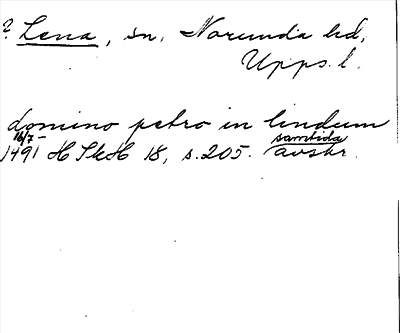 ? Lena, sn, Norunda hd,
Upps. l.
domino petro in lindum
16/7
1491 HSkH 18, s. 205. samtida avskr.